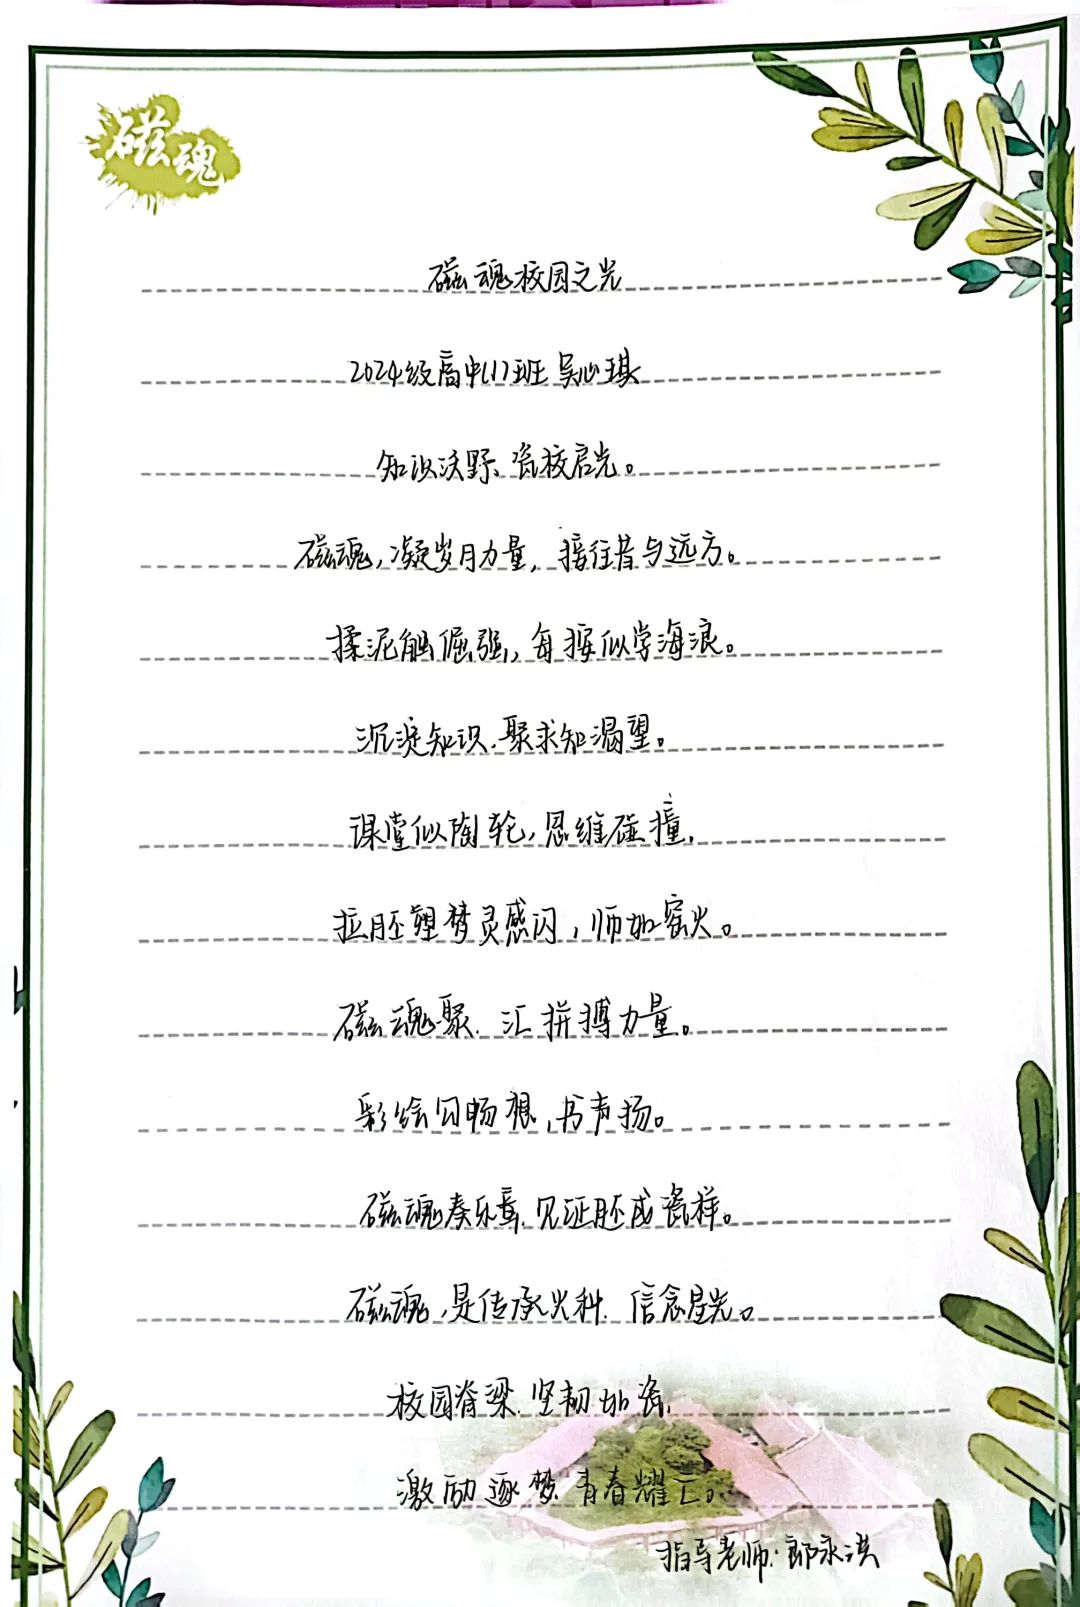 磁魂
磁魂校园之光
2024级高中(1)班 吴心琪
知识沃野、瓷校启光。
磁魂,凝岁月力量, 接往昔与远方。
揉泥触倔强, 每揉似学海浪。
沉淀知识.聚求知渴望。
课堂似陶轮,思维碰撞.
拉胚塑梦灵感闪,师如窑火。
磁魂聚. 汇拼搏力量。
彩绘勾畅想,书声扬。
磁魂奏乐章.见证胚成瓷样。
磁魂,是传承火种. 信念星光。
校园脊梁.坚韧如瓷.
激励逐梦.青春耀
指导老师:郎永淇